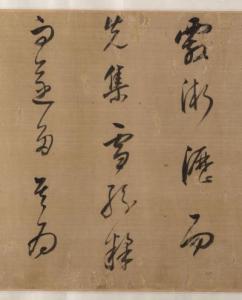 霰淅瀝而
先集雪紛糅
而遂多其為